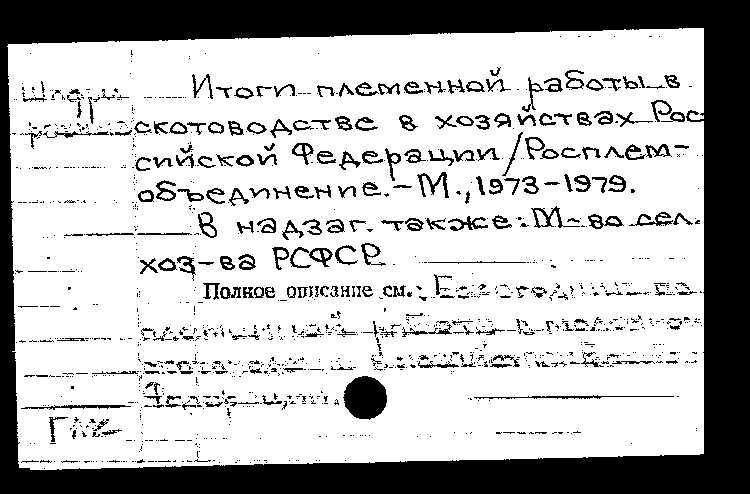 Шифры Итоги племенной работы в
скотоводстве в хозяйствах Рос-
сийской Федерации/Росплем-
объединение.-М.,1973-1979.
В надзаг. также: М-во сел.
хоз-ва РСФСР
Полное описание см.: Ежегодник по
племенной работе в молочном
Федерации.